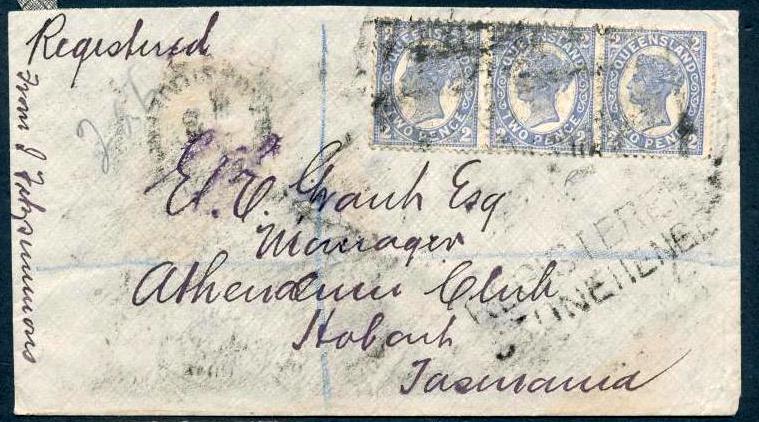 Registered
From J Fitzsimmons
QUEENSLAND
TWO PENCE
2 2
QUEENSLAND
TWO PENCE
2 2
QUEENSLAND
TWO PENCE
2 2
E. C. Grant Esq
Manager
Athenaeum Club
Hobart
Tasmania
REGISTERED